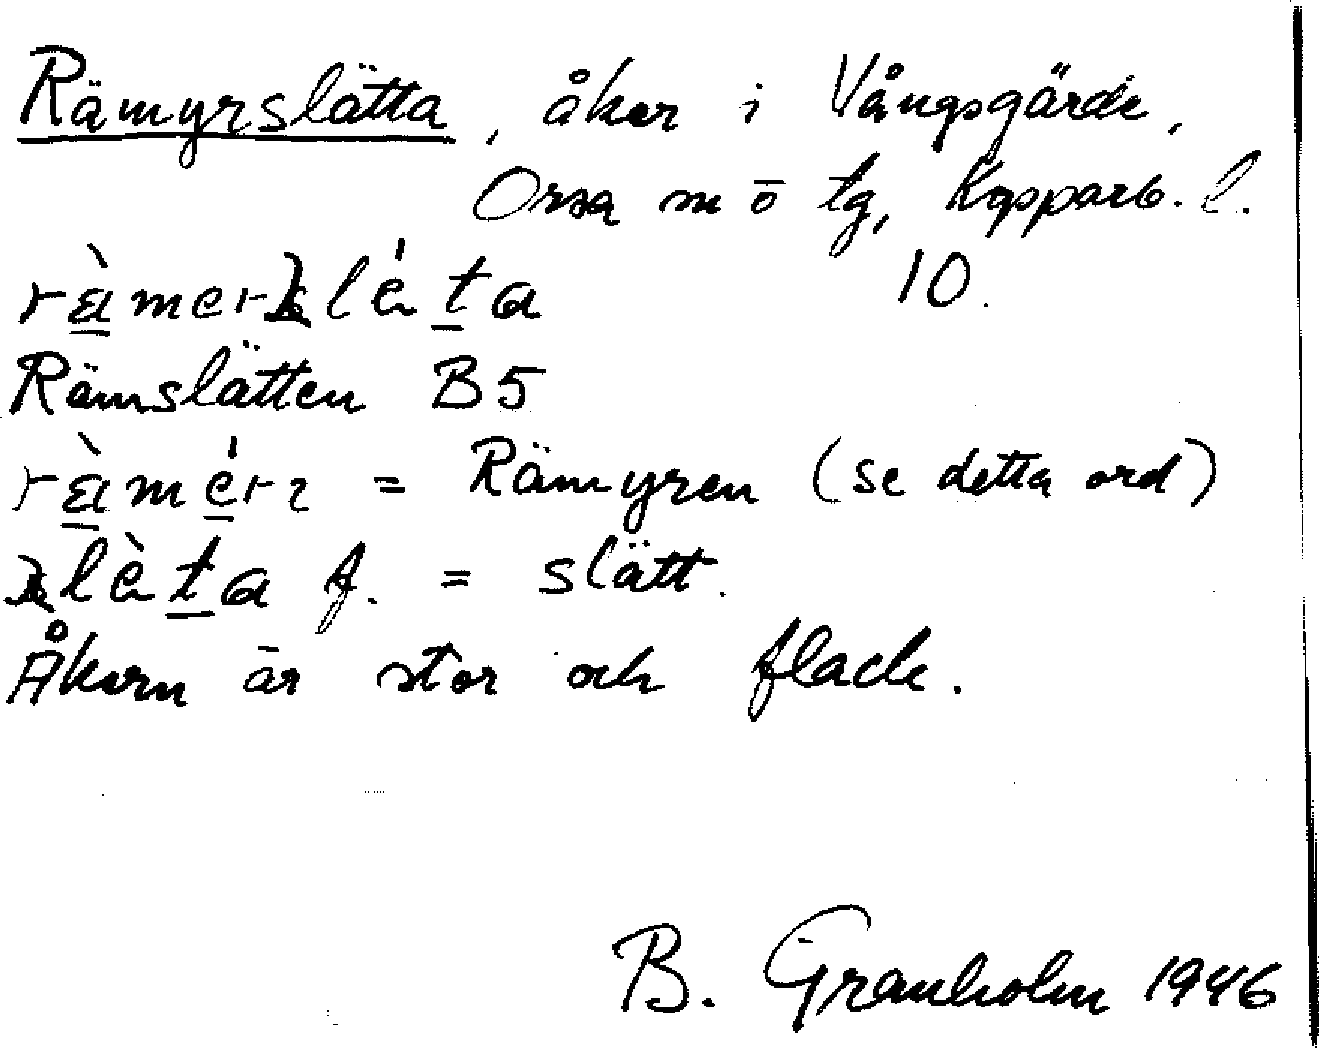 Rämyrslätta, åker i Vångsgärde,
Orsa m ö tg, Kopparb. l.
10.
Rämslätten B5
= Rämyren (se detta ord)
f. = slätt.
Åkern är stor och flack.
B. Granholm 1946